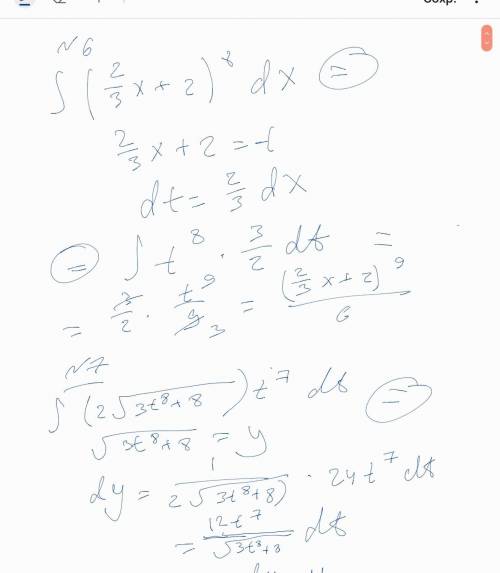 Сохр.
N6
∫ (2/3 x + 2)^8 dx =
2/3 x + 2 = t
dt = 2/3 dx
= ∫ t^8 · 3/2 dt =
= 3/2 · t^9/9 3 = (2/3 x + 2)^9/6
N7
∫ (2√(3t^8+8)) t^7 dt =
√(3t^8+8) = y
dy = 1/(2√(3t^8+8)) · 24t^7 dt
= 12t^7/√(3t^8+8) dt